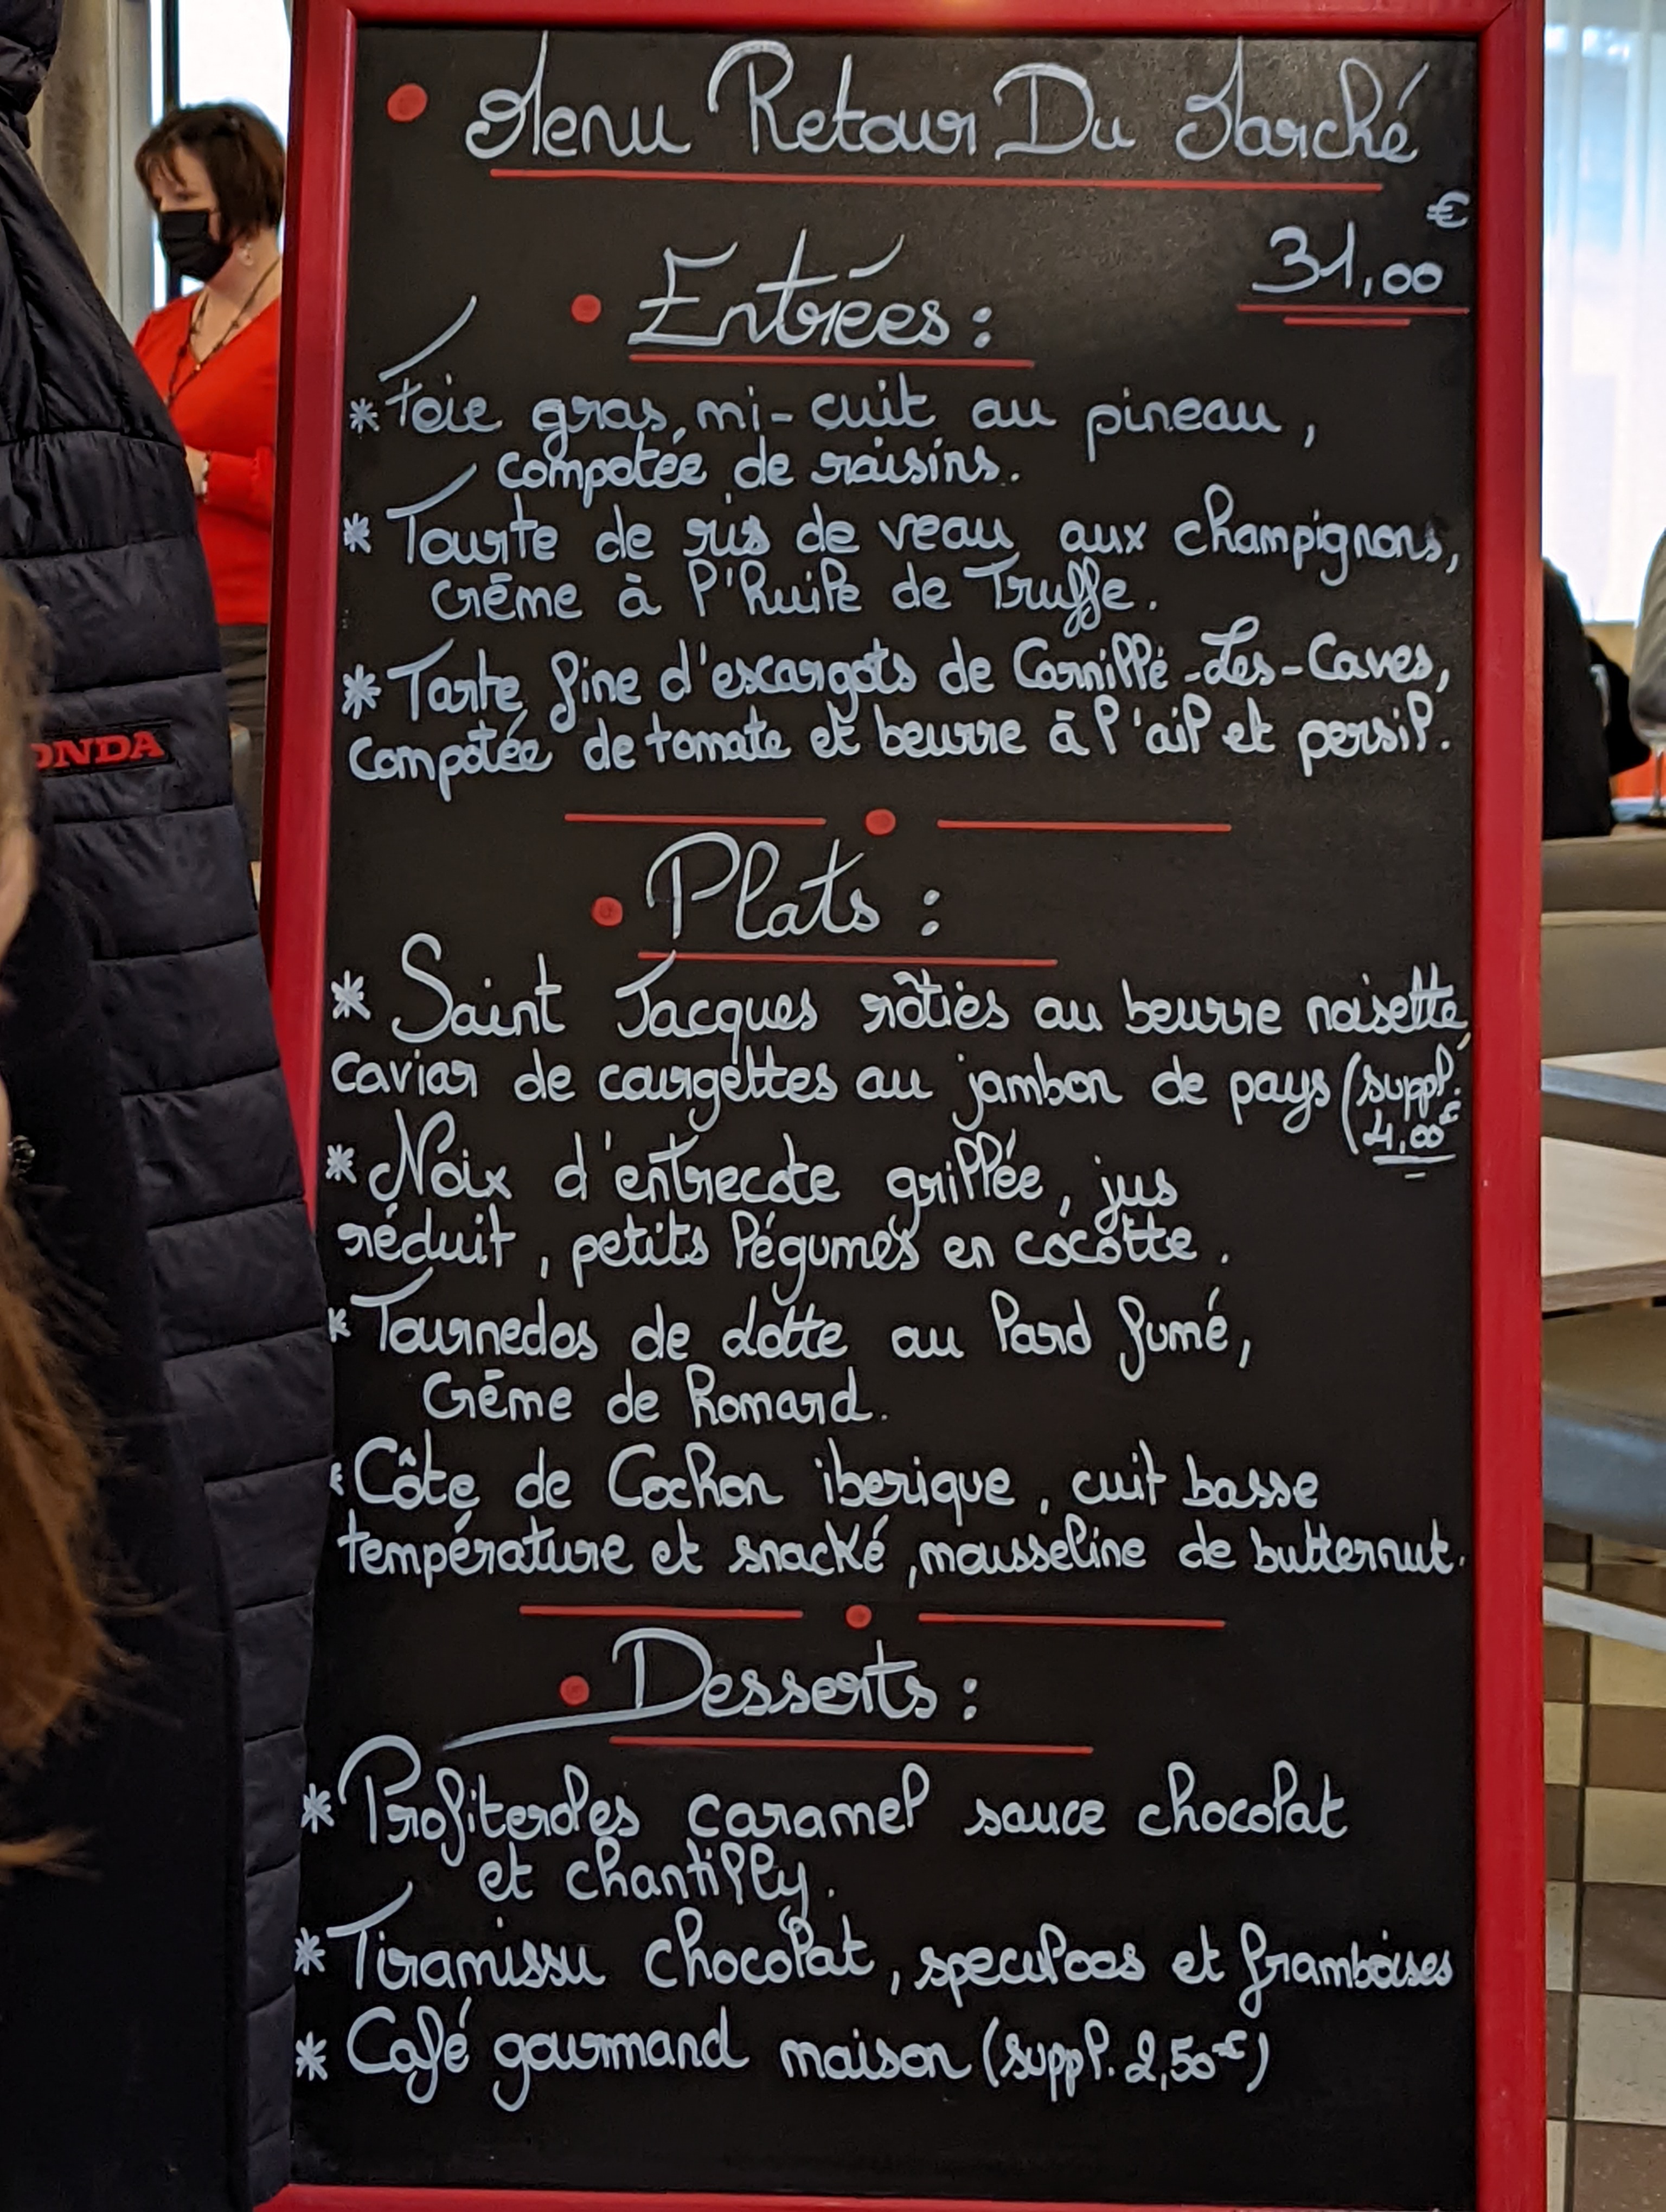 Menu Retour Du Marché
31,00€
Entrées :
* Foie gras mi-cuit au pineau,
compotée de raisins.
* Tourte de ris de veau aux champignons,
crème à l'huile de Truffe.
* Tarte fine d'escargots de Cornillé-Les-Caves,
compotée de tomate et beurre à l'ail et persil.
Plats :
* Saint Jacques rôties au beurre noisette,
caviar de courgettes au jambon de pays (suppl.
4,00€
* Noix d'entrecote grillée, jus
réduit, petits légumes en cocotte.
* Tournedos de Lotte au lard fumé,
Crème de homard.
* Côte de Cochon iberique, cuit basse
température et snacké, mousseline de butternut.
Desserts :
* Profiteroles caramel sauce chocolat
et chantilly.
* Tiramissu chocolat, speculoos et framboises
* Café gourmand maison (suppl. 2,50€)
ONDA